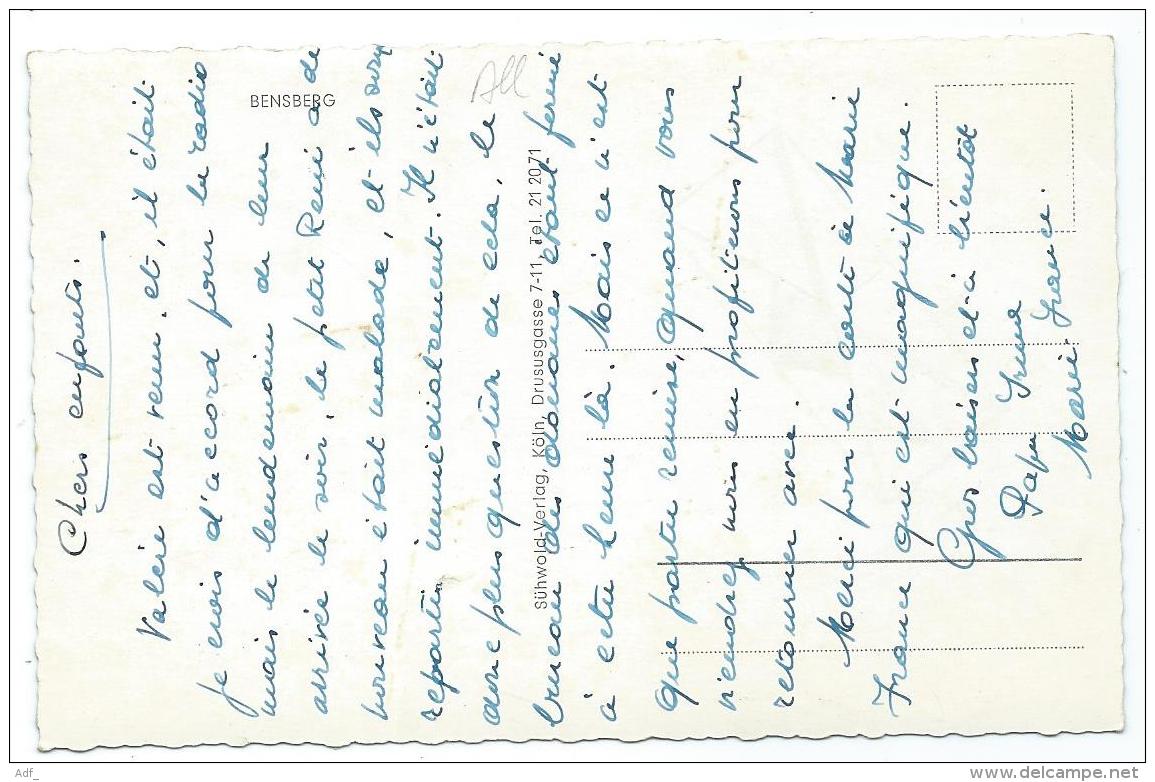 Chers enfants.
Valère est venu. et, il était
je crois d'accord pour la radio
mais le lendemain de leur
arrivée le soir, le petit René a de
nouveau était malade, et ils sont
repartis immédiatement. Il n'était
donc plus question de cela, le
bureau des douanes étant fermé
à cette heure là. Mais ce n'est
que partie remise, quand vous
viendrez nous en profiterons pour
retourner avec.
Merci pour la carte à Marie
France qui est magnifique.
Gros baisers et à bientôt
Papa Irma
Marie France.
BENSBERG
All
Sühwold-Verlag, Köln, Drususgasse 7-11, Tel. 21 20 71
Adf_
www.delcampe.net